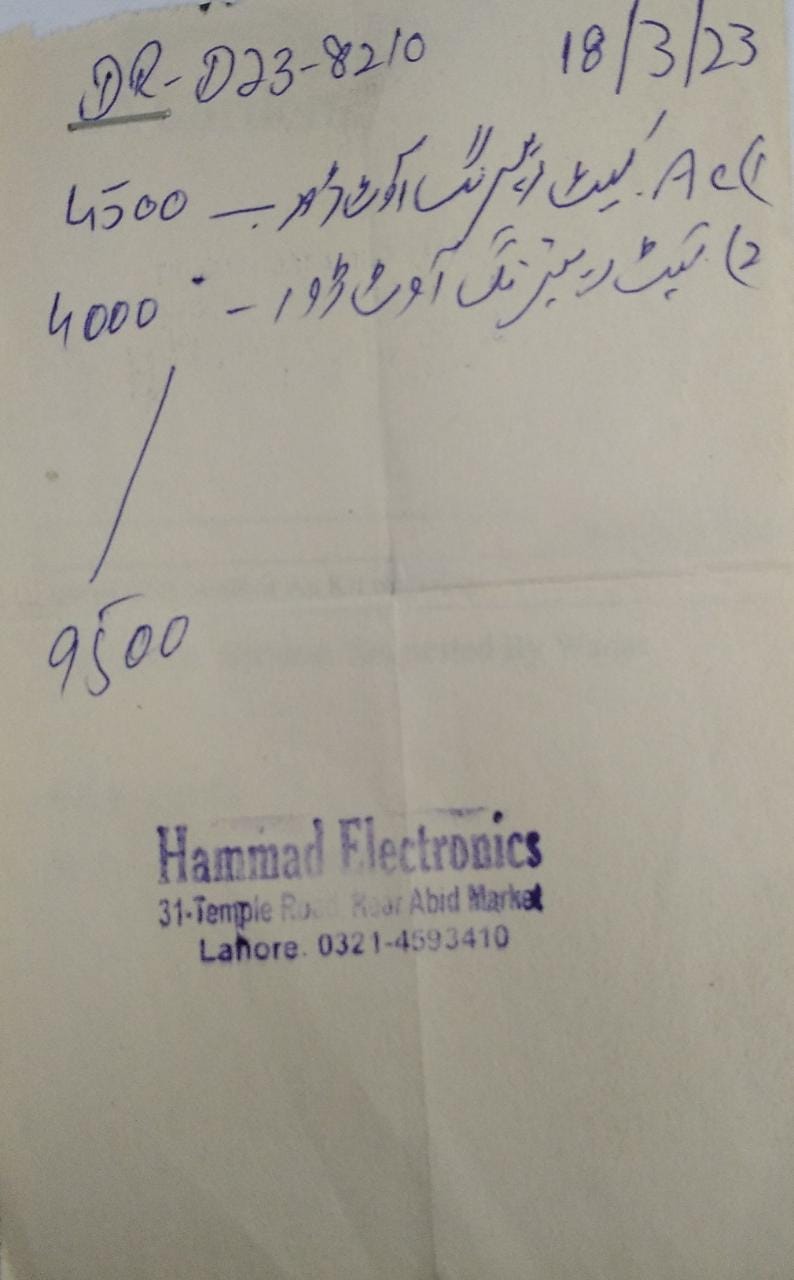 DR-D23-8210 18/3/23
1) Ac کیٹ آوٹ ڈور — 4500
2) کیٹ آوٹ ڈور — 4000
9500
Hammad Electronics
31-Temple Road, Near Abid Market
Lahore. 0321-4593410